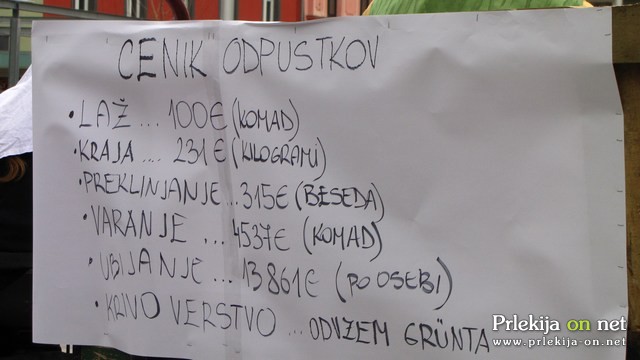 CENIK ODPUSTKOV
• LAŽ ... 100€ (KOMAD)
• KRAJA .... 231€ (KILOGRAMI)
• PREKLINJANJE ... 315€ (BESEDA)
• VARANJE ... 4537€ (KOMAD)
• UBIJANJE ... 13861€ (PO OSEBI)
• KRIVO VERSTVO ... ODVZEM GRÜNTA
Prlekija on net
www.prlekija-on.net